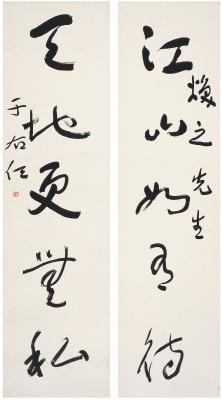 江山如有待
煥之先生
天地更無私
于右任